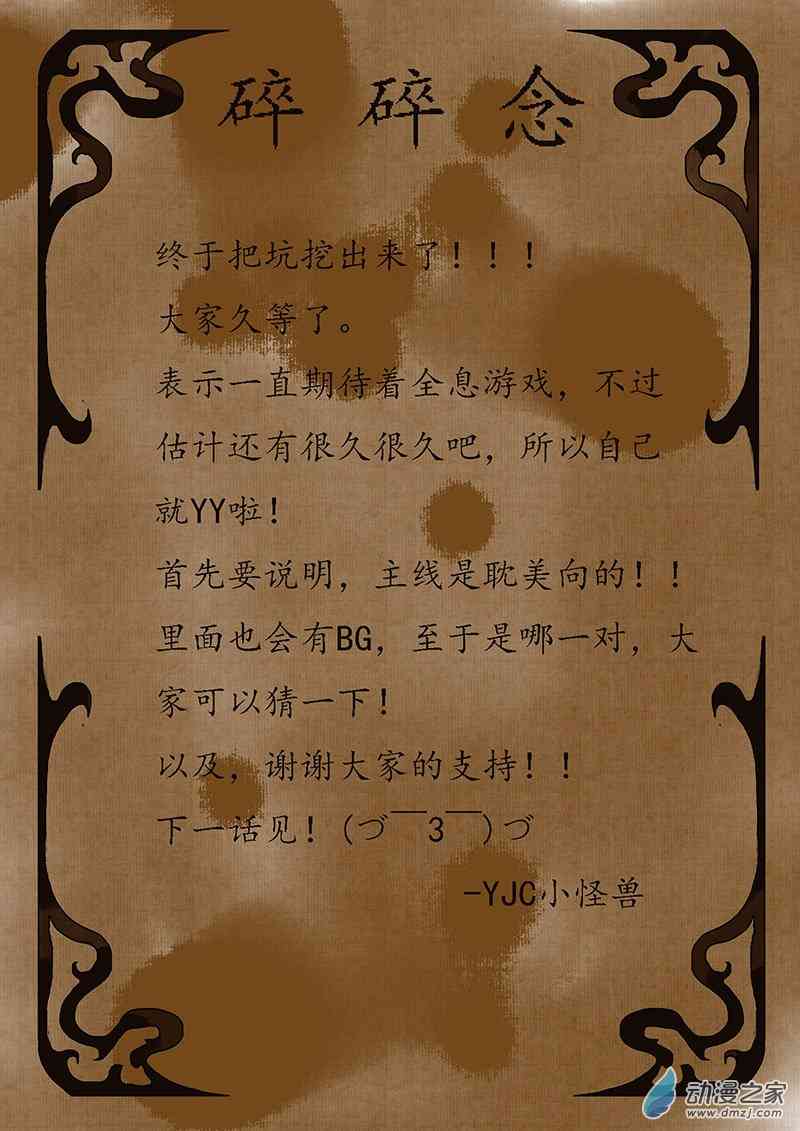 碎碎念
终于把坑挖出来了！！！
大家久等了。
表示一直期待着全息游戏，不过
估计还有很久很久吧，所以自己
就YY啦！
首先要说明，主线是耽美向的！！
里面也会有BG，至于是哪一对，大
家可以猜一下！
以及，谢谢大家的支持！！
下一话见！(づ￣3￣)づ
-YJC小怪兽
动漫之家
www.dmzj.com